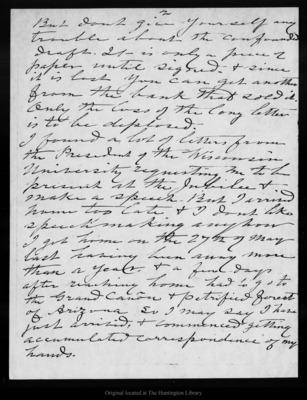 2
But dont give yourself any
trouble about the confounded
draft. It is only a piece of
paper until signed. & since
it is lost you can get another
from the bank that sold it.
Only the loss of the long letter
is to be deplored.
I found a lot of letters from
the President of the Wisconsin
University requesting me to be
present at the Jubilee &
make a speech. But I arrived
home too late & I dont like
speechmaking anyhow
I got home on the 27th of May
last having been away more
than a year, & a few days
after reaching home had to go to
the Grand Cañon & Petrified forest
of Arizona So I may say I have
just arrived, & commenced getting
accumulated correspondence off my
hands.
Original located at The Huntington Library